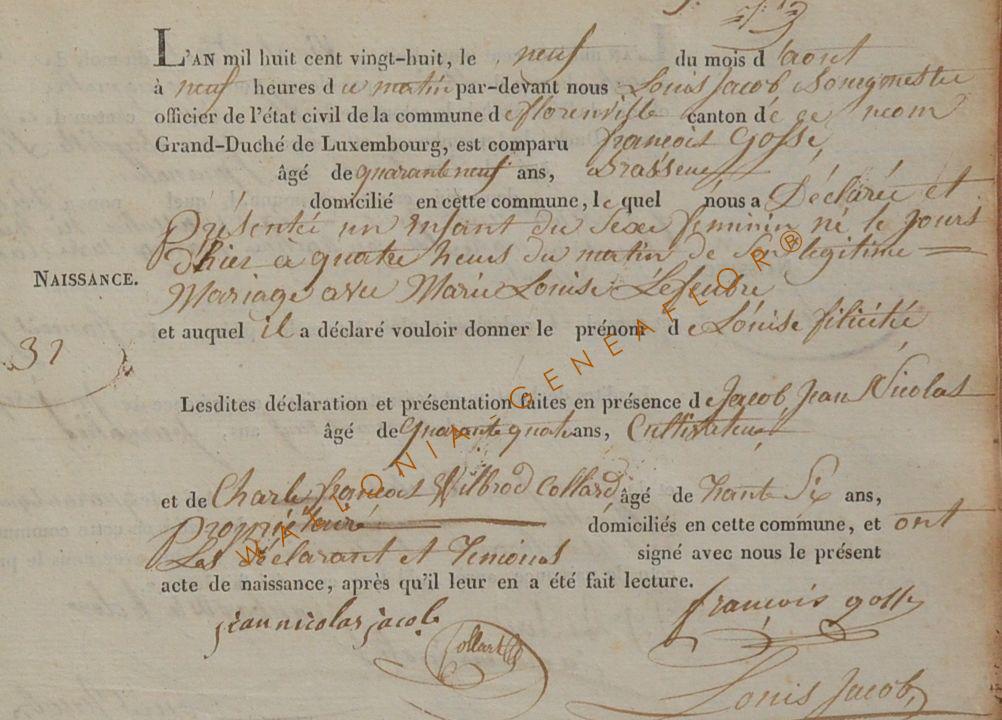 L'AN mil huit cent vingt-huit, le neuf du mois d'aout
à neuf heures du matin par-devant nous Louis Jacob Bourgmestre
officier de l'état civil de la commune de florenville canton de ce nom
Grand-Duché de Luxembourg, est comparu françois Gosse,
âgé de quarante neuf ans, Brasseur
domicilié en cette commune, le quel nous a Déclarée et
Présentée un enfant du Sexe feminin né le jours
D'hier à quatre heurs du matin de Son legitime
NAISSANCE.
Mariage avec Marie Louise Lefeubre
et auquel il a déclaré vouloir donner le prénom de Louise filicitée
32
Lesdites déclaration et présentation faites en présence de Jacob Jean Nicolas
âgé de Quarante quatre ans, Cultivateur
et de Charle françois Wilbrod Collard âgé de Trente Six ans,
Proprietaire domiciliés en cette commune, et ont
Les Déclarant et Temoins signé avec nous le présent
acte de naissance, après qu'il leur en a été fait lecture.
jean nicolas jacob
françois gosse
Collart
Louis Jacob
WALLONIA GENEAFLOR®